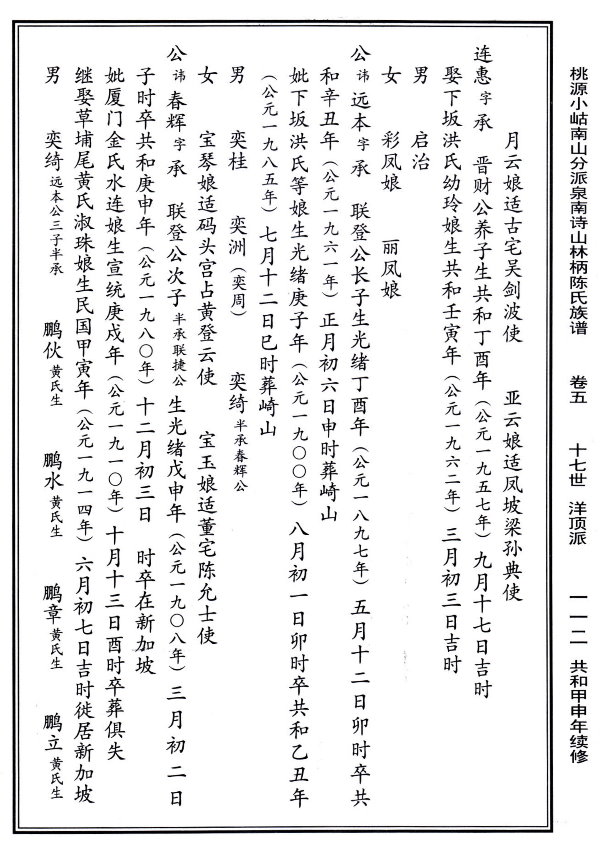 桃源小岵南山分派泉南诗山林柄陈氏族谱 卷五 十七世 洋顶派 一一二 共和甲申年续修
月云娘适古宅吴剑波使 亚云娘适凤坡梁孙典使
连惠字承 晋财公养子生共和丁酉年（公元一九五七年）九月十七日吉时
娶下坂洪氏幼玲娘生共和壬寅年（公元一九六二年）三月初三日吉时
男 启治
女 彩凤娘 丽凤娘
公讳远本字承 联登公长子生光绪丁酉年（公元一八九七年）五月十二日卯时卒共
和辛丑年（公元一九六一年）正月初六日申时葬崎山
妣下坂洪氏等娘生光绪庚子年（公元一九〇〇年）八月初一日卯时卒共和乙丑年
（公元一九八五年）七月十二日巳时葬崎山
男 奕桂 奕洲（奕周） 奕绮半承春辉公
女 宝琴娘适码头宫占黄登云使 宝玉娘适董宅陈允士使
公讳春辉字承 联登公次子半承联捷公生光绪戊申年（公元一九〇八年）三月初二日
子时卒共和庚申年（公元一九八〇年）十二月初三日 时卒在新加坡
妣厦门金氏水连娘生宣统庚戌年（公元一九一〇年）十月十三日酉时卒葬俱失
继娶草埔尾黄氏淑珠娘生民国甲寅年（公元一九一四年）六月初七日吉时徙居新加坡
男 奕绮远本公三子半承 鹏伙黄氏生 鹏水黄氏生 鹏章黄氏生 鹏立黄氏生